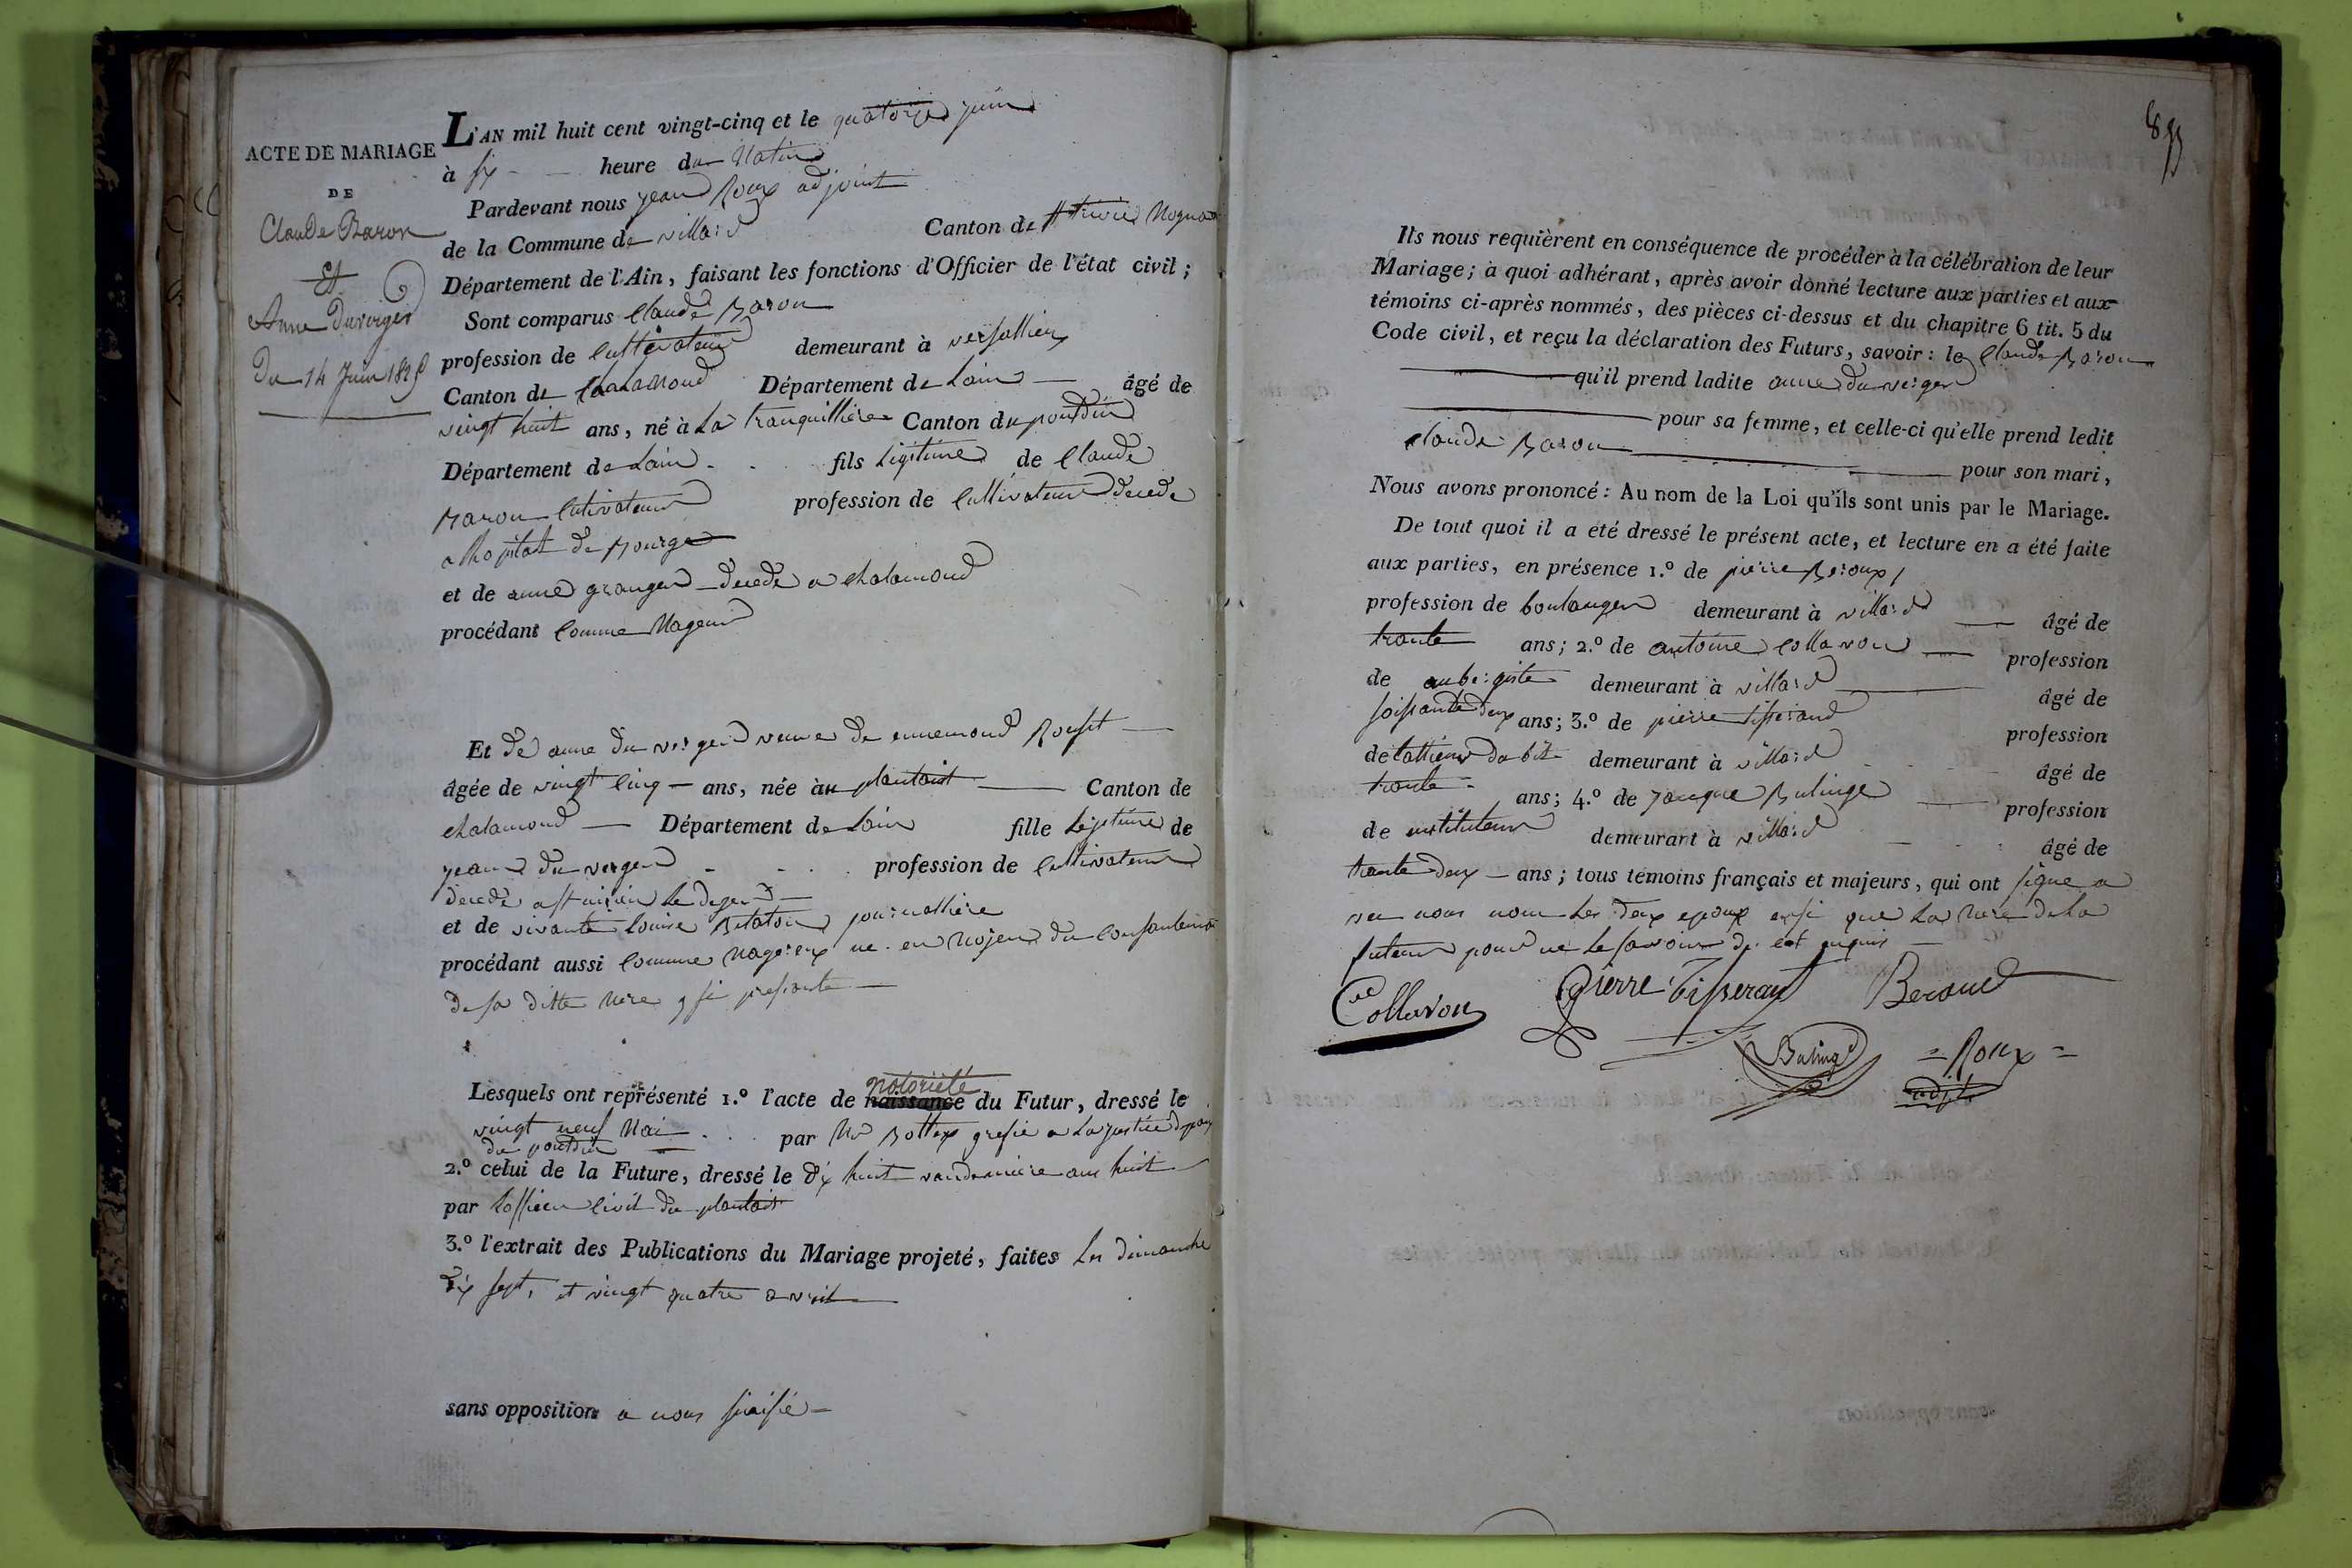 ACTE DE MARIAGE
DE
Claude Baron
Et
Anne Duverger
Du 14 Juin 1825
L'AN mil huit cent vingt-cinq et le quatorze juin
à six heure du Matin
Pardevant nous jean Roux adjoint
de la Commune de villard Canton de
Département de l'Ain, faisant les fonctions d'Officier de l'état civil;
Sont comparus Claude Baron
profession de Cultivateur demeurant à versallieux
Canton de Chalamond Département de Lain âgé de
vingt huit ans, né à La tranquilliere Canton du pontdin
Département de Lain fils Légitime de Claude
Baron Cultivateur profession de Cultivateur decede
a lhopital de Bourge
et de anne granger decede a chalamond
procédant Comme Mageur
Et de anne du verger veuve de ennemond Rouset
âgée de vingt Cinq ans, née au plantait Canton de
chalamond Département de Lain fille Légitime de
jean du verger profession de Cultivateur
decede a st nizier Le deser
et de vivante Louise journalliere
procédant aussi Comme Mageure en Mojen du Consantement
de sa ditte Mere y si presante
Lesquels ont représenté 1.º l'acte de naissance notoriété du Futur, dressé le
vingt neuf Mai par Mr Bottex grefie a La justice de paix
du pontdin
2.º celui de la Future, dressé le dix huit vandemiaire an huit
par Lofficier Civil du plantait
3.º l'extrait des Publications du Mariage projeté, faites Les dimanche
dix sept, et vingt quatre avril
sans opposition a nous
Ils nous requièrent en conséquence de procéder à la célébration de leur
Mariage; à quoi adhérant, après avoir donné lecture aux parties et aux
témoins ci-après nommés, des pièces ci-dessus et du chapitre 6 tit. 5 du
Code civil, et reçu la déclaration des Futurs, savoir: le Claude Baron
qu'il prend ladite anne du verger
pour sa femme, et celle-ci qu'elle prend ledit
Claude Baron pour son mari,
Nous avons prononcé: Au nom de la Loi qu'ils sont unis par le Mariage.
De tout quoi il a été dressé le présent acte, et lecture en a été faite
aux parties, en présence 1.º de pierre Beroux
profession de boulanger demeurant à villard âgé de
trante ans; 2.º de antoine Collavon profession
de aubergiste demeurant à villard âgé de
soissante deux ans; 3.º de pierre tisserand profession
de demeurant à villard âgé de
trante ans; 4.º de jacque Bulinge profession
de instituteur demeurant à villard âgé de
trante deux ans; tous témoins français et majeurs, qui ont signe a
vec nous non Les deux epoux insi que La Mere de La
future pour ne Le savoir de ce enquis
Collavon Pierre Tisserand Beroud
Bulinge = Roux =
adjt